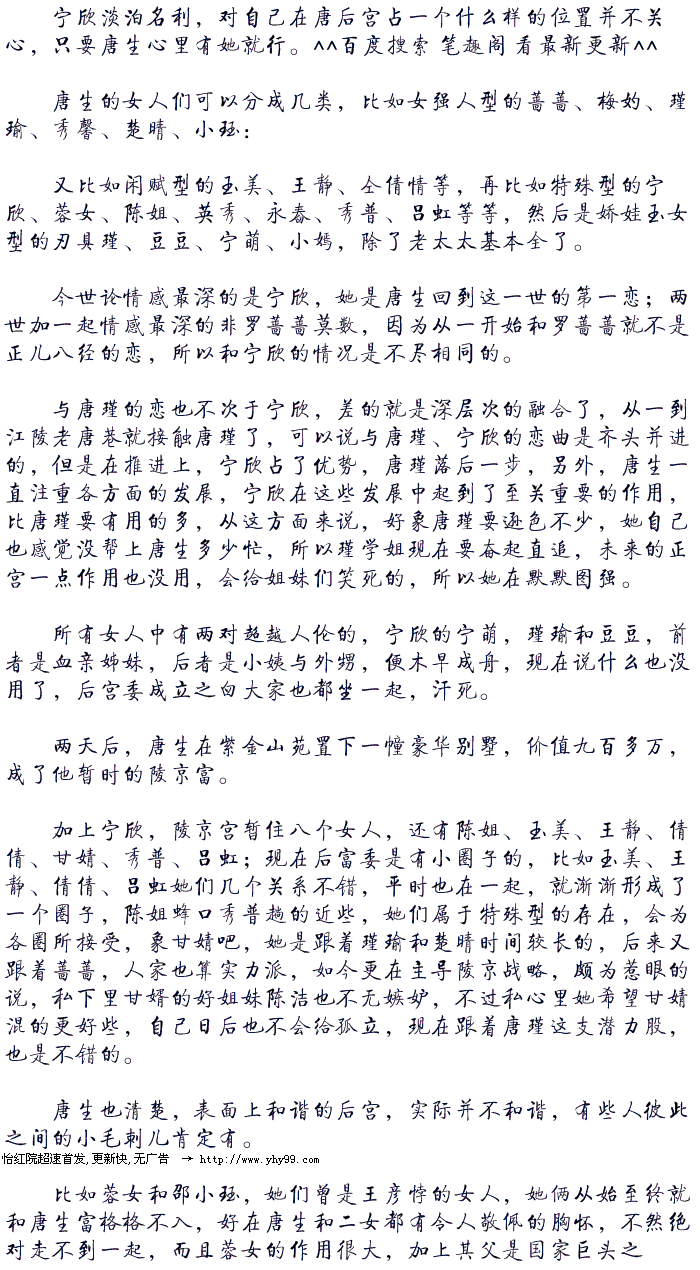 宁欣淡泊名利，对自己在唐后宫占一个什么样的位置并不关
心，只要唐生心里有她就行。^^百度搜索 笔趣阁 看最新更新^^
唐生的女人们可以分成几类，比如女强人型的蔷蔷、梅妁、瑾
瑜、秀馨、楚晴、小珏：
又比如闲赋型的玉美、王静、仝倩情等，再比如特殊型的宁
欣、蓉女、陈姐、英秀、永春、秀普、吕虹等等，然后是娇娃玉女
型的刃具瑾、豆豆、宁萌、小嫣，除了老太太基本全了。
今世论情感最深的是宁欣，她是唐生回到这一世的第一恋；两
世加一起情感最深的非罗蔷蔷莫数，因为从一开始和罗蔷蔷就不是
正儿八经的恋，所以和宁欣的情况是不尽相同的。
与唐瑾的恋也不次于宁欣，差的就是深层次的融合了，从一到
江陵老唐巷就接触唐瑾了，可以说与唐瑾、宁欣的恋曲是齐头并进
的，但是在推进上，宁欣占了优势，唐瑾落后一步，另外，唐生一
直注重各方面的发展，宁欣在这些发展中起到了至关重要的作用，
比唐瑾要有用的多，从这方面来说，好象唐瑾要逊色不少，她自己
也感觉没帮上唐生多少忙，所以瑾学姐现在要奋起直追，未来的正
宫一点作用也没用，会给姐妹们笑死的，所以她在默默图强。
所有女人中有两对超越人伦的，宁欣的宁萌，瑾瑜和豆豆，前
者是血亲姊妹，后者是小姨与外甥，便木早成舟，现在说什么也没
用了，后宫委成立之白大家也都坐一起，汗死。
两天后，唐生在紫金山苑置下一幢豪华别墅，价值九百多万，
成了他暂时的陵京富。
加上宁欣，陵京宫暂住八个女人，还有陈姐、玉美、王静、倩
倩、甘婧、秀普、吕虹；现在后富委是有小圈子的，比如玉美、王
静、倩倩、吕虹她们几个关系不错，平时也在一起，就渐渐形成了
一个圈子，陈姐蜂口秀普趟的近些，她们属于特殊型的存在，会为
各圈所接受，象甘婧吧，她是跟着瑾瑜和楚晴时间较长的，后来又
跟着蔷蔷，人家也算实力派，如今更在主导陵京战略，颇为惹眼的
说，私下里甘婿的好姐妹陈洁也不无嫉妒，不过私心里她希望甘婧
混的更好些，自己日后也不会给孤立，现在跟着唐瑾这支潜力股，
也是不错的。
唐生也清楚，表面上和谐的后宫，实际并不和谐，有些人彼此
之间的小毛刺儿肯定有。
怡红院超速首发,更新快,无广告 → http://www.yhy99.com
比如蓉女和邵小珏，她们曾是王彦悖的女人，她俩从始至终就
和唐生富格格不入，好在唐生和二女都有令人敬佩的胸怀，不然绝
对走不到一起，而且蓉女的作用很大，加上其父是国家巨头之